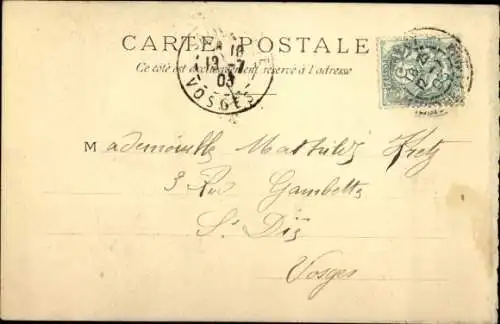 CARTE POSTALE
Ce côté est exclusivement réservé à l'adresse
10
12 -7
03
VOSGES
Mademoiselle Mathilde Kretz
3 Rue Gambetta
St Dié
Vosges